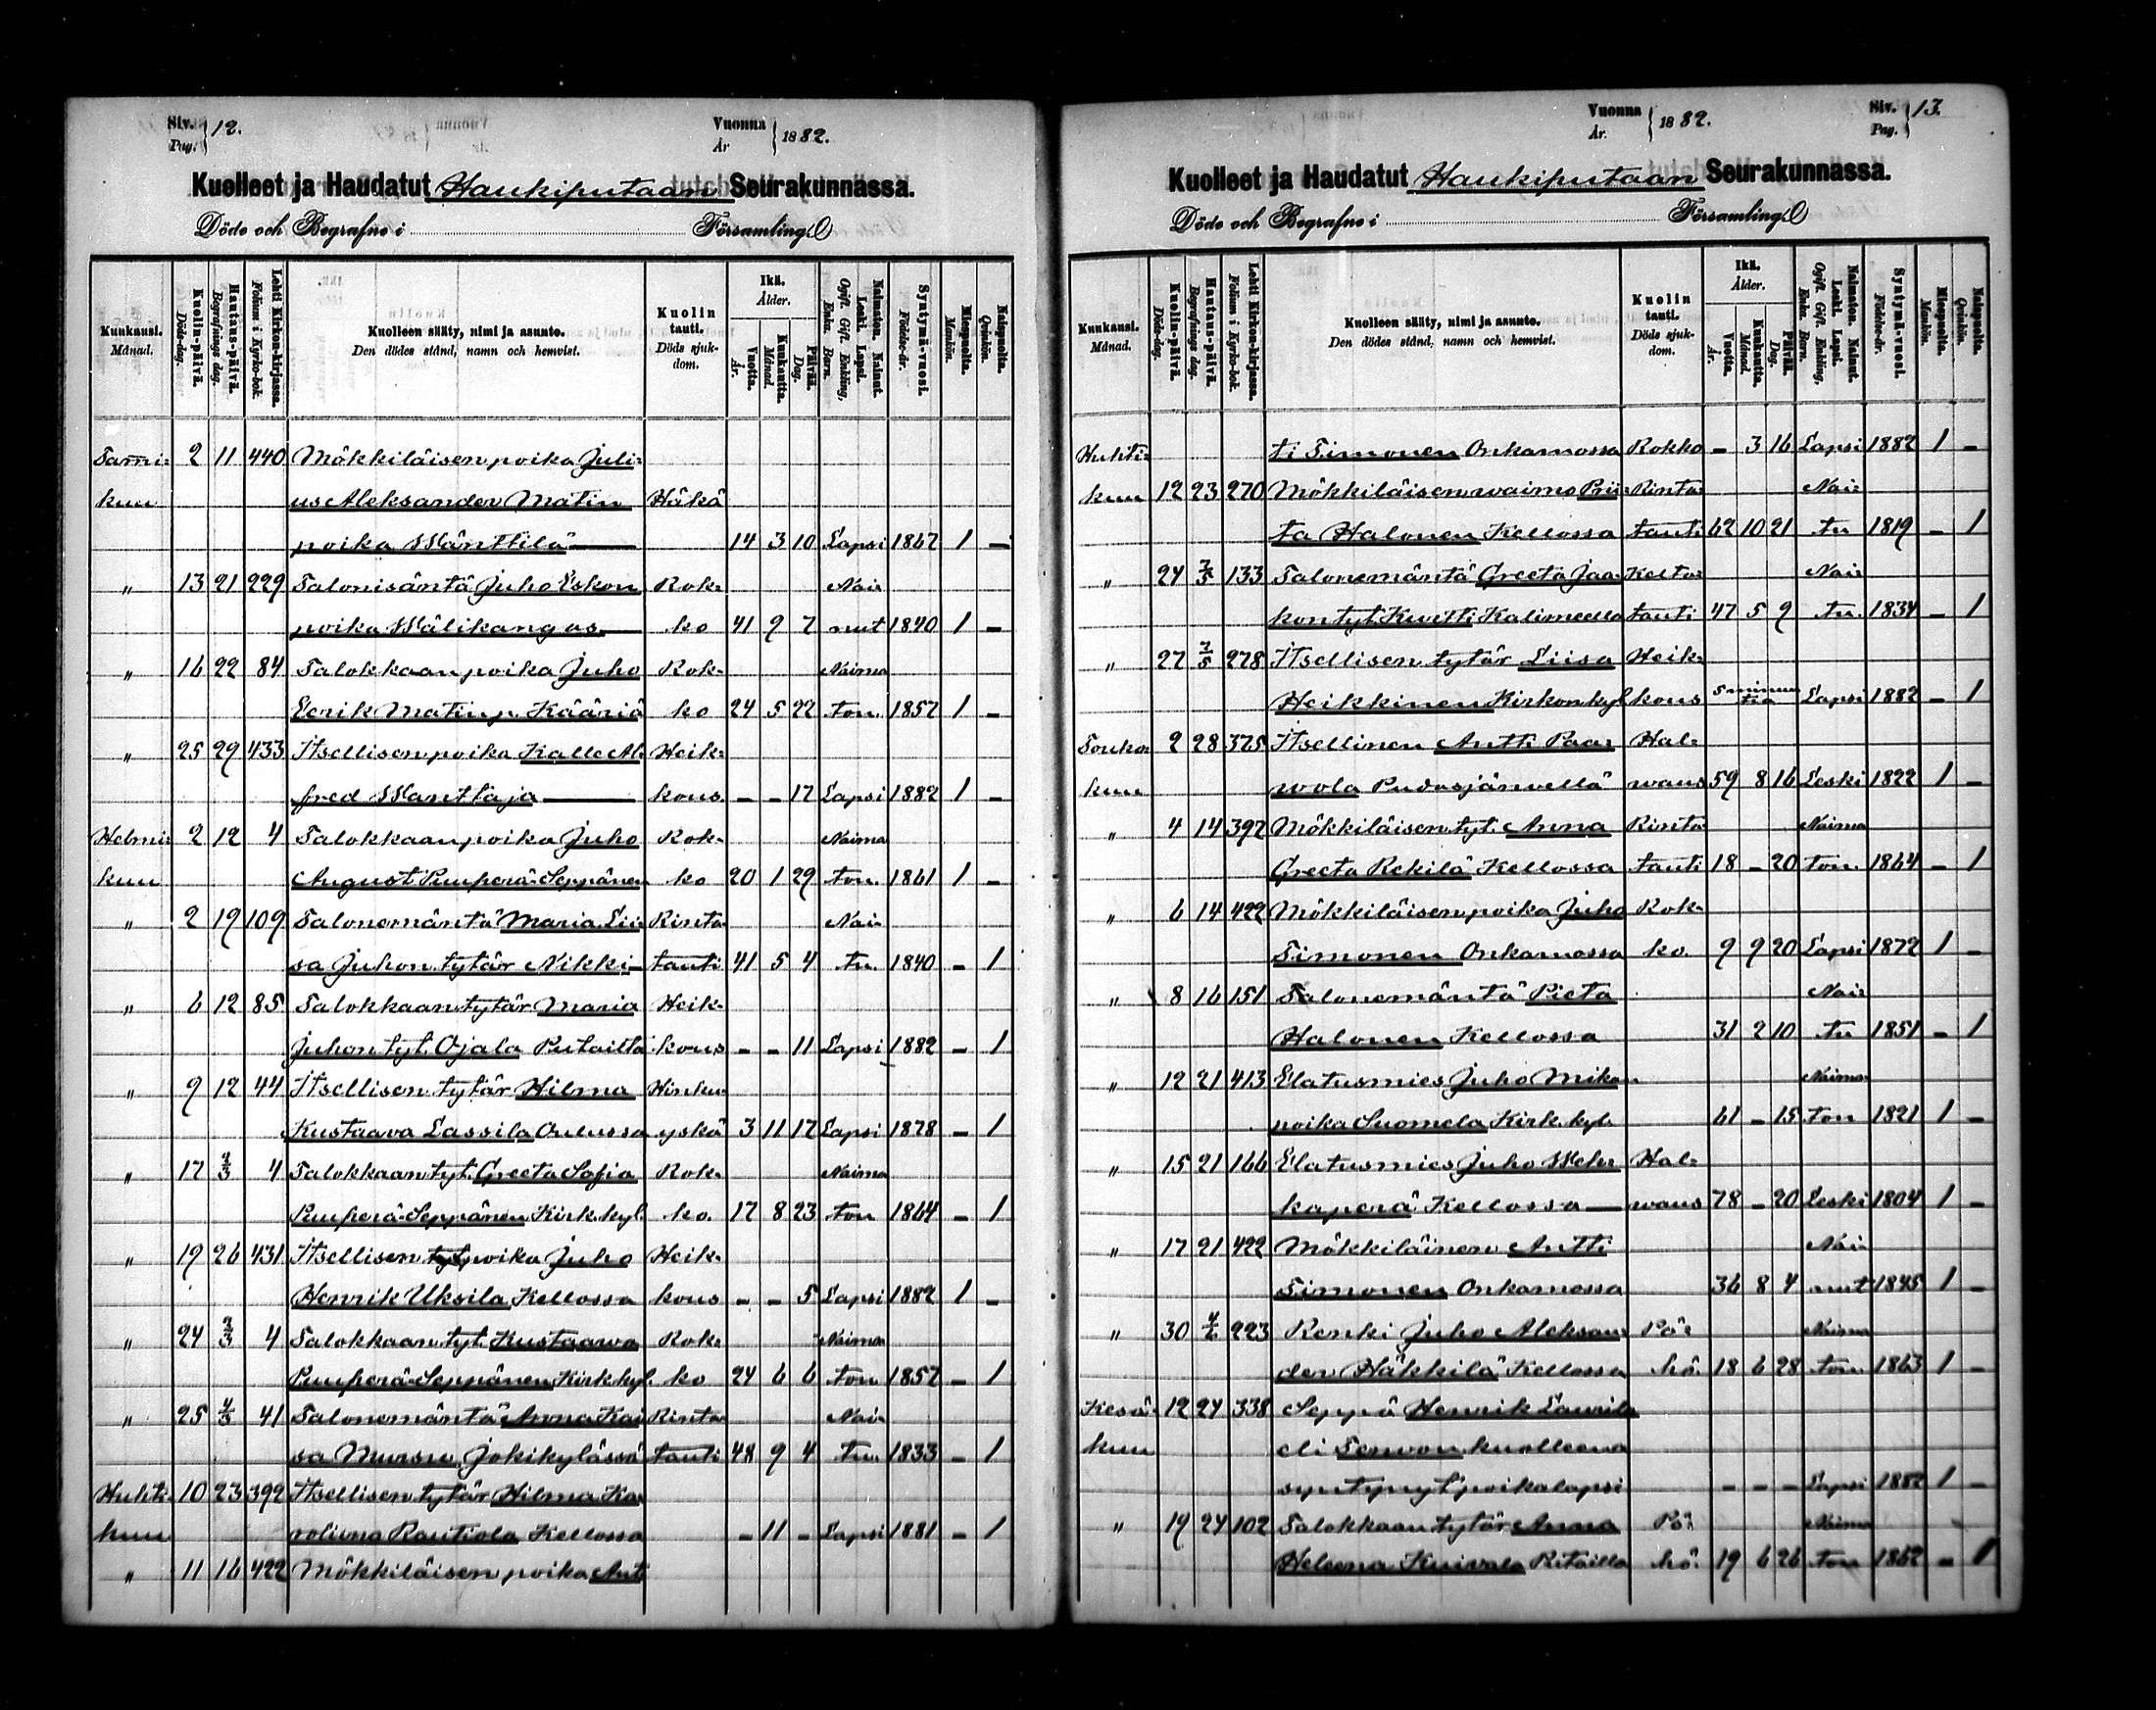 Siv. Pag. 12.
Vuonna År 1882.
Kuolleet ja Haudatut Haukiputaan Seurakunnassa.
Döde och Begrafne i Församling.
Kuukausi. Månad. Kuolin-päivä. Döds-dag. Hautaus-päivä. Begrafnings dag. Lehti Kirkon-kirjassa. Folium i Kyrko-bok. Kuolleen sääty, nimi ja asunto. Den dödes stånd, namn och hemvist. Kuolin tauti. Döds sjukdom. Ikä. Ålder. Vuotta. År. Kuukautta. Månad. Päivää. Dag. Naimaton. Nainut. Leski. Lapsi. Ogift. Gift. Enkling, Enka. Barn. Syntymä-vuosi. Födelse-år. Miespuolta. Mankön. Naispuolta. Qvinkön.
Tammi= 2 11 440 Mökkiläisen poika Juli=
kuu us Aleksander Matin Häkä
poika Wänttilä 14 3 10 Lapsi 1867 1 —
" 13 21 229 Talonisäntä Juho Eskon Rok= Nai=
poika Wälikangas ko 41 9 7 nut 1840 1 —
" 16 22 84 Talokkaan poika Juho Rok= Naima
Eerik Matin p. Kääriä ko 24 5 22 ton. 1857 1 —
" 25 29 433 Itsellisen poika Kalle Al= Heik=
fred Wanttaja kous. — — 17 Lapsi 1882 1 —
Helmi= 2 12 4 Talokkaan poika Juho Rok= Naima
kuu August Puuperä-Seppänen ko 20 1 29 ton. 1861 1 —
" 2 19 109 Talonemäntä Maria Lii= Rinta= Nai=
sa Juhon tytär Nikki tauti 41 5 4 tu. 1840 — 1
" 6 12 85 Talokkaan tytär Maria Heik=
Juhon tyt. Ojala Putailta kous — — 11 Lapsi 1882 — 1
" 9 12 44 Itsellisen tytär Hilma Hinku=
Kustaava Lassila Oulussa yskä 3 11 17 Lapsi 1878 — 1
" 17 2/3 4 Talokkaan tyt. Greeta Sofia Rok= Naima
Puuperä-Seppänen Kirk. kyl. ko. 17 8 23 ton 1864 — 1
" 19 26 431 Itsellisen poika Juho Heik=
Henrik Uksila Kellossa kous — — 5 Lapsi 1882 1 —
" 24 2/3 4 Talokkaan tyt. Kustaava Rok= Naima
Puuperä-Seppänen Kirk kyl. ko 24 6 6 ton 1857 — 1
" 25 4/3 41 Talonemäntä Anna Kai Rinta= Nai=
sa Mursu Jokikylässä tauti 48 9 4 tu. 1833 — 1
Huhti= 10 23 392 Itsellisen tytär Hilma Ka=
kuu roliina Rautiola Kellossa — 11 — Lapsi 1881 — 1
" 11 16 422 Mökkiläisen poika Ant
Vuonna År. 1882.
Siv. Pag. 13.
Kuolleet ja Haudatut Haukiputaan Seurakunnassa.
Döde och Begrafne i Församling.
Kuukausi. Månad. Kuolin-päivä. Döds-dag. Hautaus-päivä. Begrafnings dag. Lehti Kirkon-kirjassa. Folium i Kyrko-bok. Kuolleen sääty, nimi ja asunto. Den dödes stånd, namn och hemvist. Kuolin tauti. Döds sjukdom. Ikä. Ålder. Vuotta. År. Kuukautta. Månad. Päivää. Dag. Naimaton. Nainut. Leski. Lapsi. Ogift. Gift. Enkling, Enka. Barn. Syntymä-vuosi. Födelse-år. Miespuolta. Mankön. Naispuolta. Qvinkön.
Huhti= ti Timonen Onkamossa Rokko — 3 16 Lapsi 1882 1 —
kuu 12 23 270 Mökkiläisen waimo Prii= Rinta= Nai=
ta Halonen Kellossa tauti 62 10 21 tu 1819 — 1
" 24 7/5 133 Talonemäntä Greeta Jaa= Kelta= Nai=
kon tyt. Kwitti Kalimeella tauti 47 5 9 tu. 1834 — 1
" 27 7/5 278 Itsellisen tytär Liisa Heik=
Heikkinen Kirkonkyl kous 5 minuu tia Lapsi 1882 — 1
Touko= 2 28 375 Itsellinen Antti Paa= Hal=
kuu wola Pudasjärwellä waus 59 8 16 Leski 1822 1 —
" 4 14 392 Mökkiläisen tyt. Anna Rinta= Naima
Greeta Rekilä Kellossa tauti 18 — 20 ton. 1864 — 1
" 6 14 422 Mökkiläisen poika Juho Rok=
Timonen Onkamossa ko. 9 9 20 Lapsi 1872 1 —
" 8 16 151 Talonemäntä Pieta Nai=
Halonen Kellossa 31 2 10 tu 1851 — 1
" 12 21 413 Elatusmies Juho Mikon Naima
poika Suomela Kirk. kyl. 61 — 15 ton 1821 1 —
" 15 21 166 Elatusmies Juho Weh= Hal=
kaperä Kellossa waus 78 — 20 Leski 1804 1 —
" 17 21 422 Mökkiläinen Antti Nai=
Timonen Onkamossa 36 8 4 nut 1845 1 —
" 30 4/6 223 Renki Juho Aleksan= Pö= Naima
der Häkkilä Kellossa hö. 18 6 28 ton. 1863 1 —
Kesä= 12 24 338 Seppä Henrik Laurila
kuu eli kuolleena
syntynyt poikalapsi — — — Lapsi 1882 1 —
" 19 24 102 Talokkaan tytär Anna Pö= Naima
Heleena Kuivala hö. 19 6 26 ton 1862 — 1